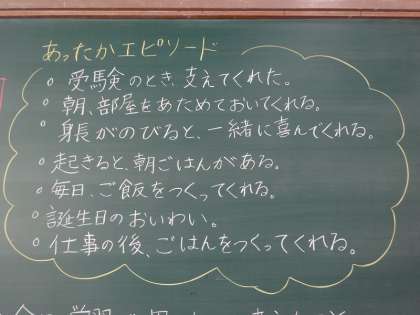 あったかエピソード
○ 受験のとき、支えてくれた。
○ 朝、部屋をあたためておいてくれる。
○ 身長がのびると、一緒に喜んでくれる。
○ 起きると、朝ごはんがある。
○ 毎日、ご飯をつくってくれる。
○ 誕生日のおいわい。
○ 仕事の後、ごはんをつくってくれる。